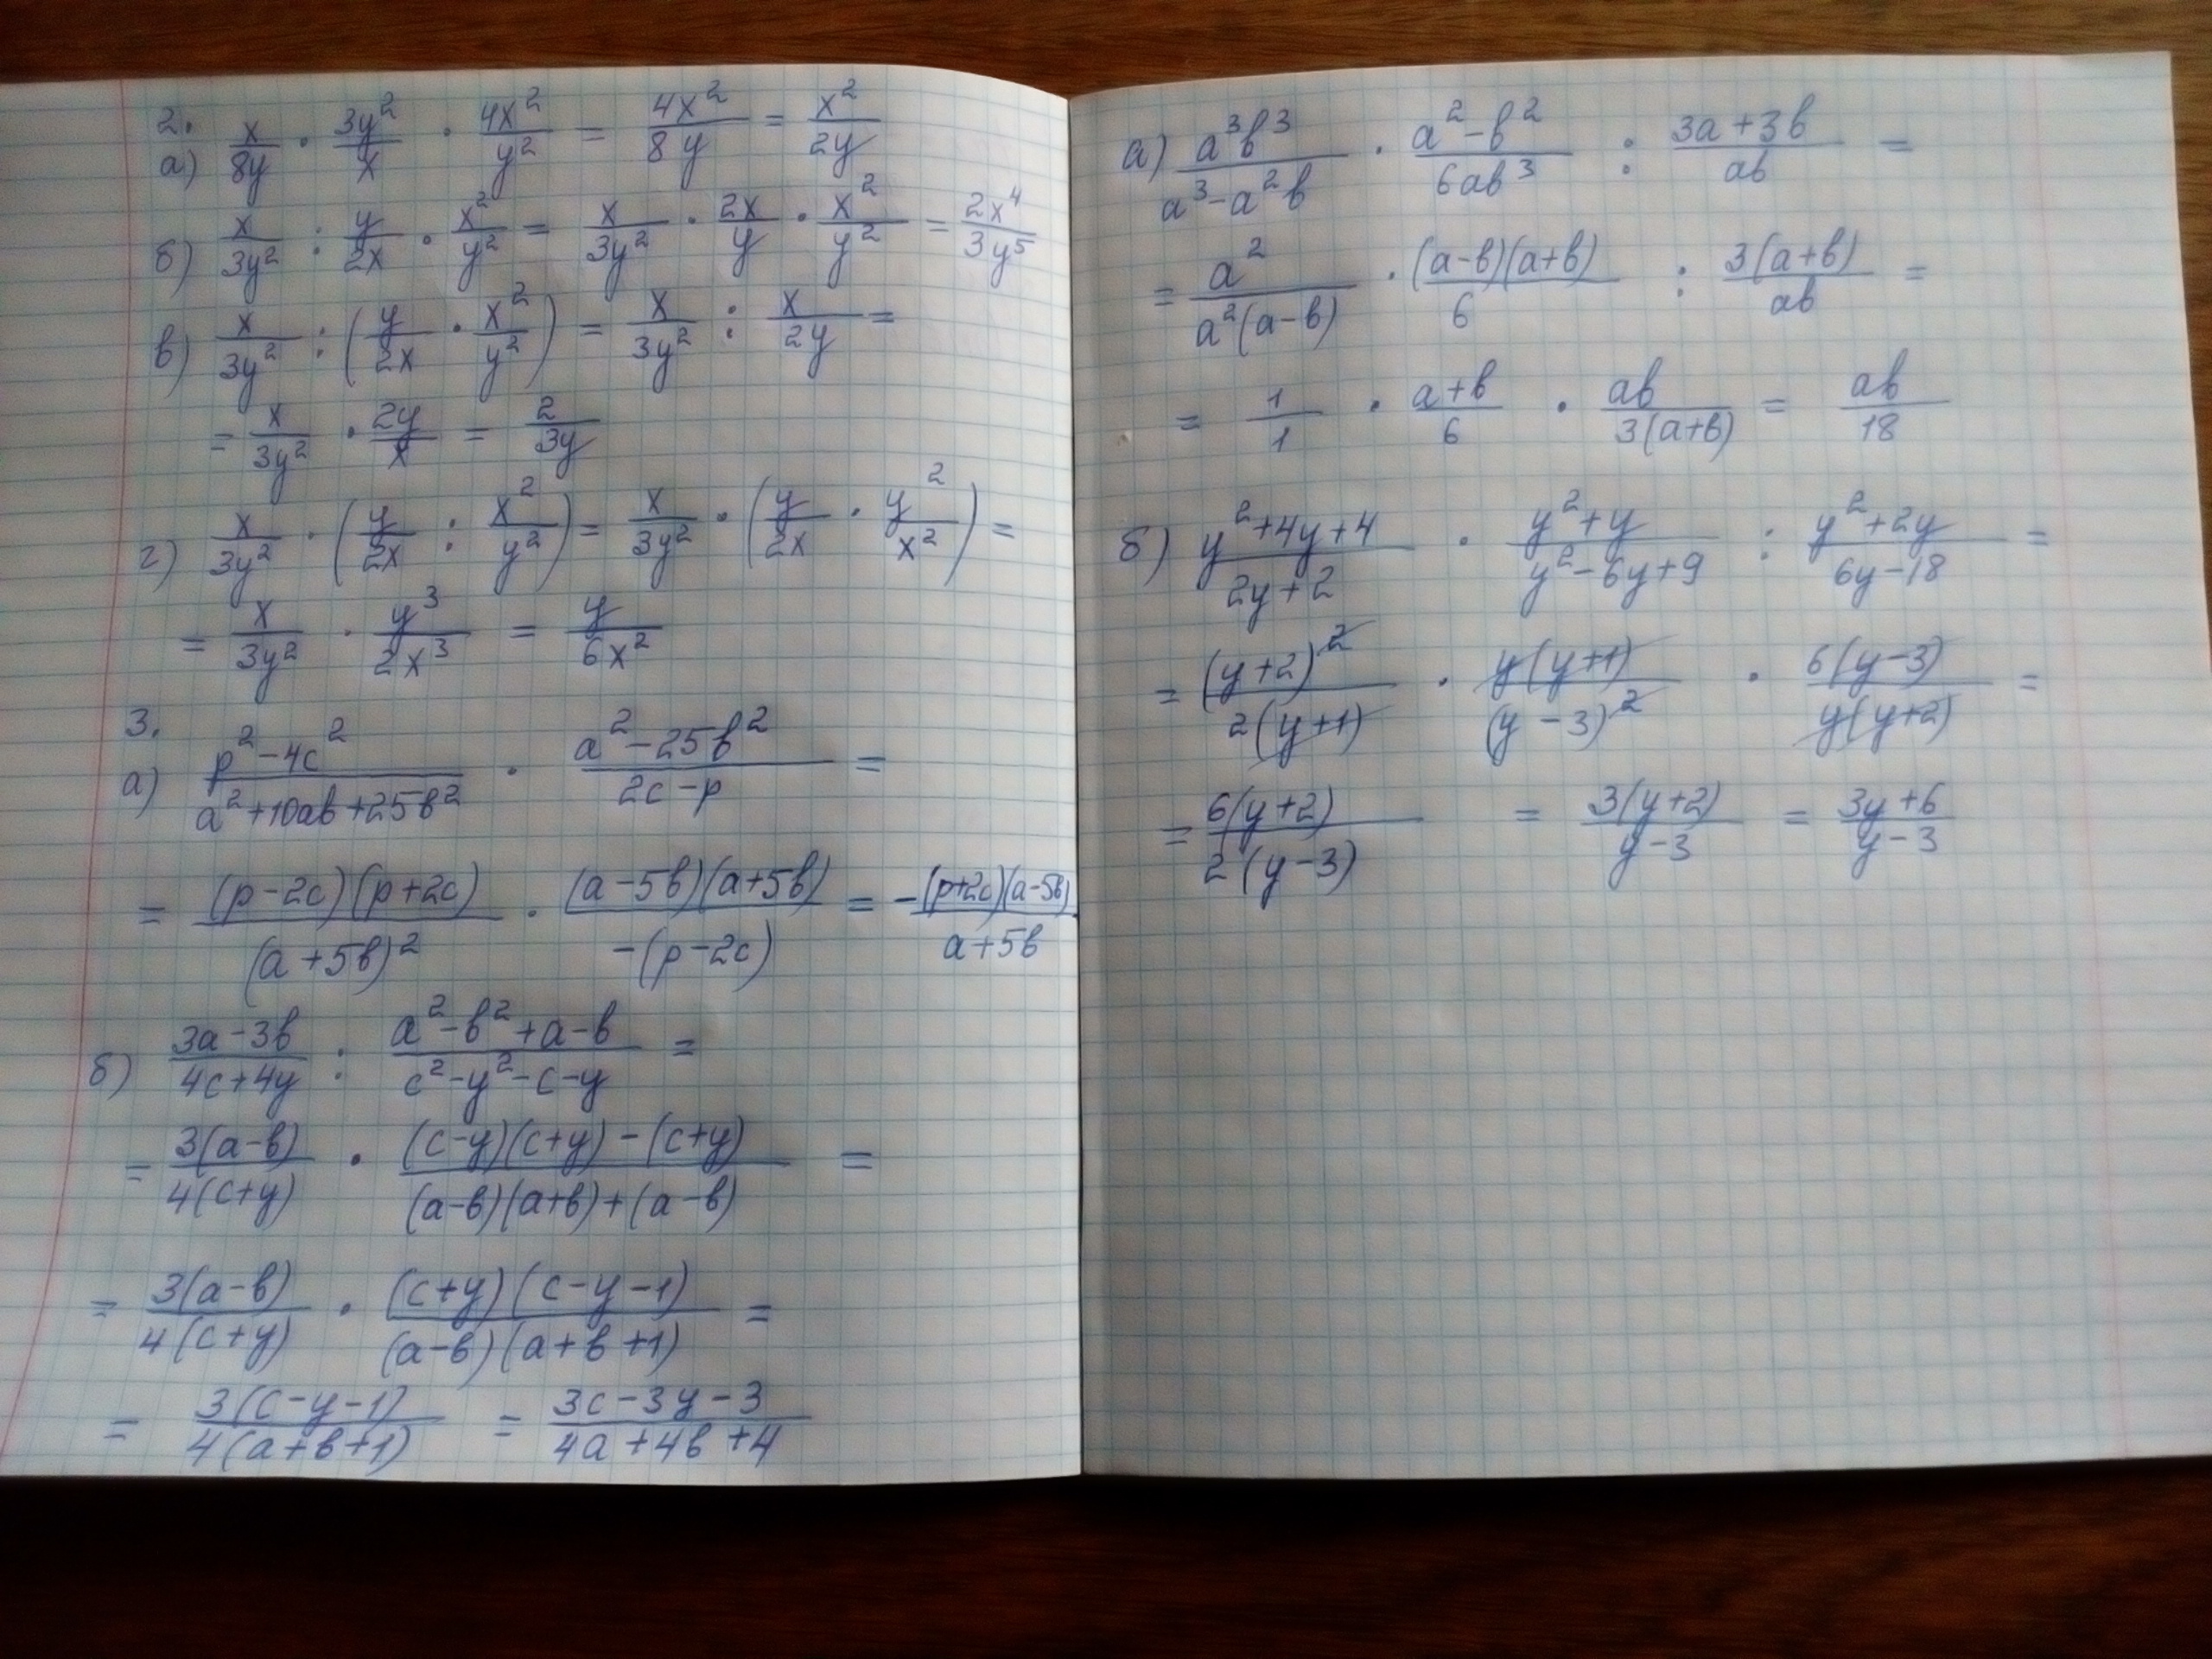 2.
а) x/8y · 3y²/x · 4x²/y² = 4x²/8y = x²/2y
б) x/3y² : y/2x · x²/y² = x/3y² · 2x/y · x²/y² = 2x⁴/3y⁵
в) x/3y² : (y/2x · x²/y²) = x/3y² : x/2y =
= x/3y² · 2y/x = 2/3y
г) x/3y² · (y/2x : x²/y²) = x/3y² · (y/2x · y²/x²) =
= x/3y² · y³/2x³ = y/6x²
3.
а) (p²-4c²)/(a²+10ab+25b²) · (a²-25b²)/(2c-p) =
= (p-2c)(p+2c)/(a+5b)² · (a-5b)(a+5b)/-(p-2c) = -(p+2c)(a-5b)/(a+5b)
б) (3a-3b)/(4c+4y) : (a²-b²+a-b)/(c²-y²-c-y) =
= 3(a-b)/4(c+y) · ((c-y)(c+y)-(c+y))/((a-b)(a+b)+(a-b)) =
= 3(a-b)/4(c+y) · (c+y)(c-y-1)/(a-b)(a+b+1) =
= 3(c-y-1)/4(a+b+1) = (3c-3y-3)/(4a+4b+4)
а) a³b³/(a³-a²b) · (a²-b²)/6ab³ : (3a+3b)/ab =
= a²/a²(a-b) · (a-b)(a+b)/6 : 3(a+b)/ab =
= 1/1 · (a+b)/6 · ab/3(a+b) = ab/18
б) (y²+4y+4)/(2y+2) · (y²+y)/(y²-6y+9) : (y²+2y)/(6y-18) =
= (y+2)²/2(y+1) · y(y+1)/(y-3)² · 6(y-3)/y(y+2) =
= 6(y+2)/2(y-3) = 3(y+2)/(y-3) = (3y+6)/(y-3)